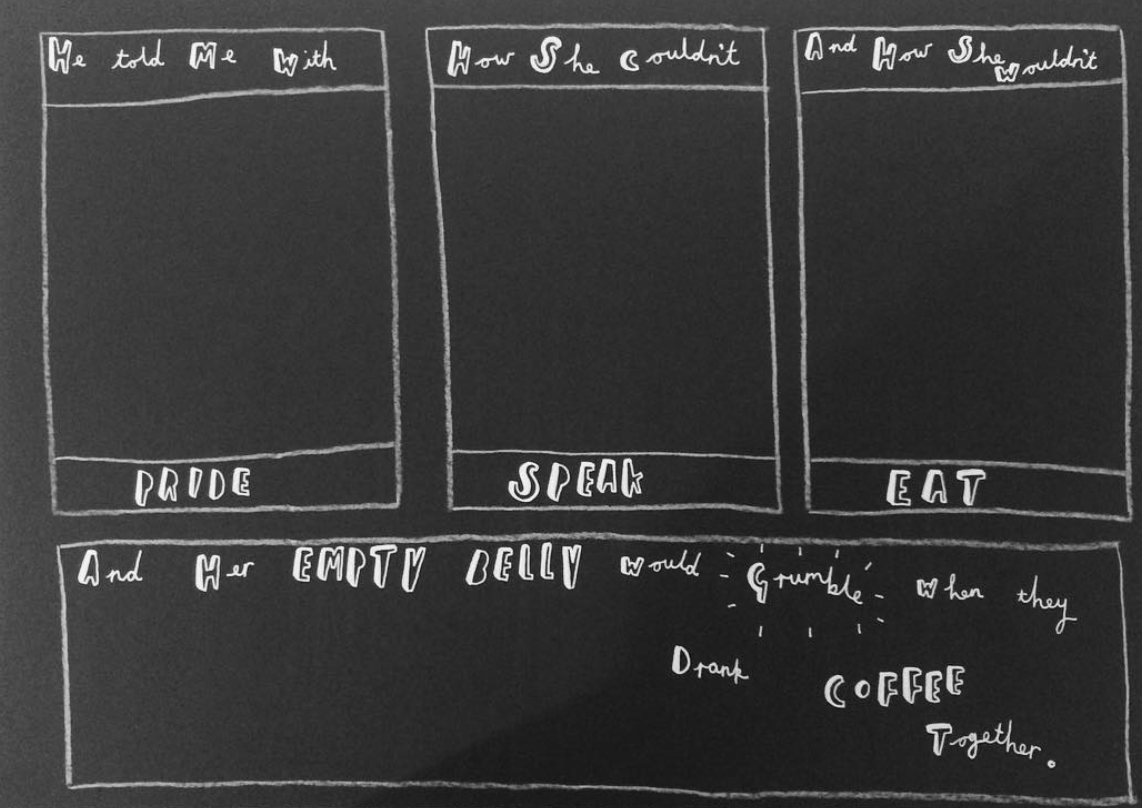 He told Me with
PRIDE
How She couldn't
SPEAK
And How She wouldn't
EAT
And Her EMPTY BELLY would Grumble when they
Drank COFFEE
Together.